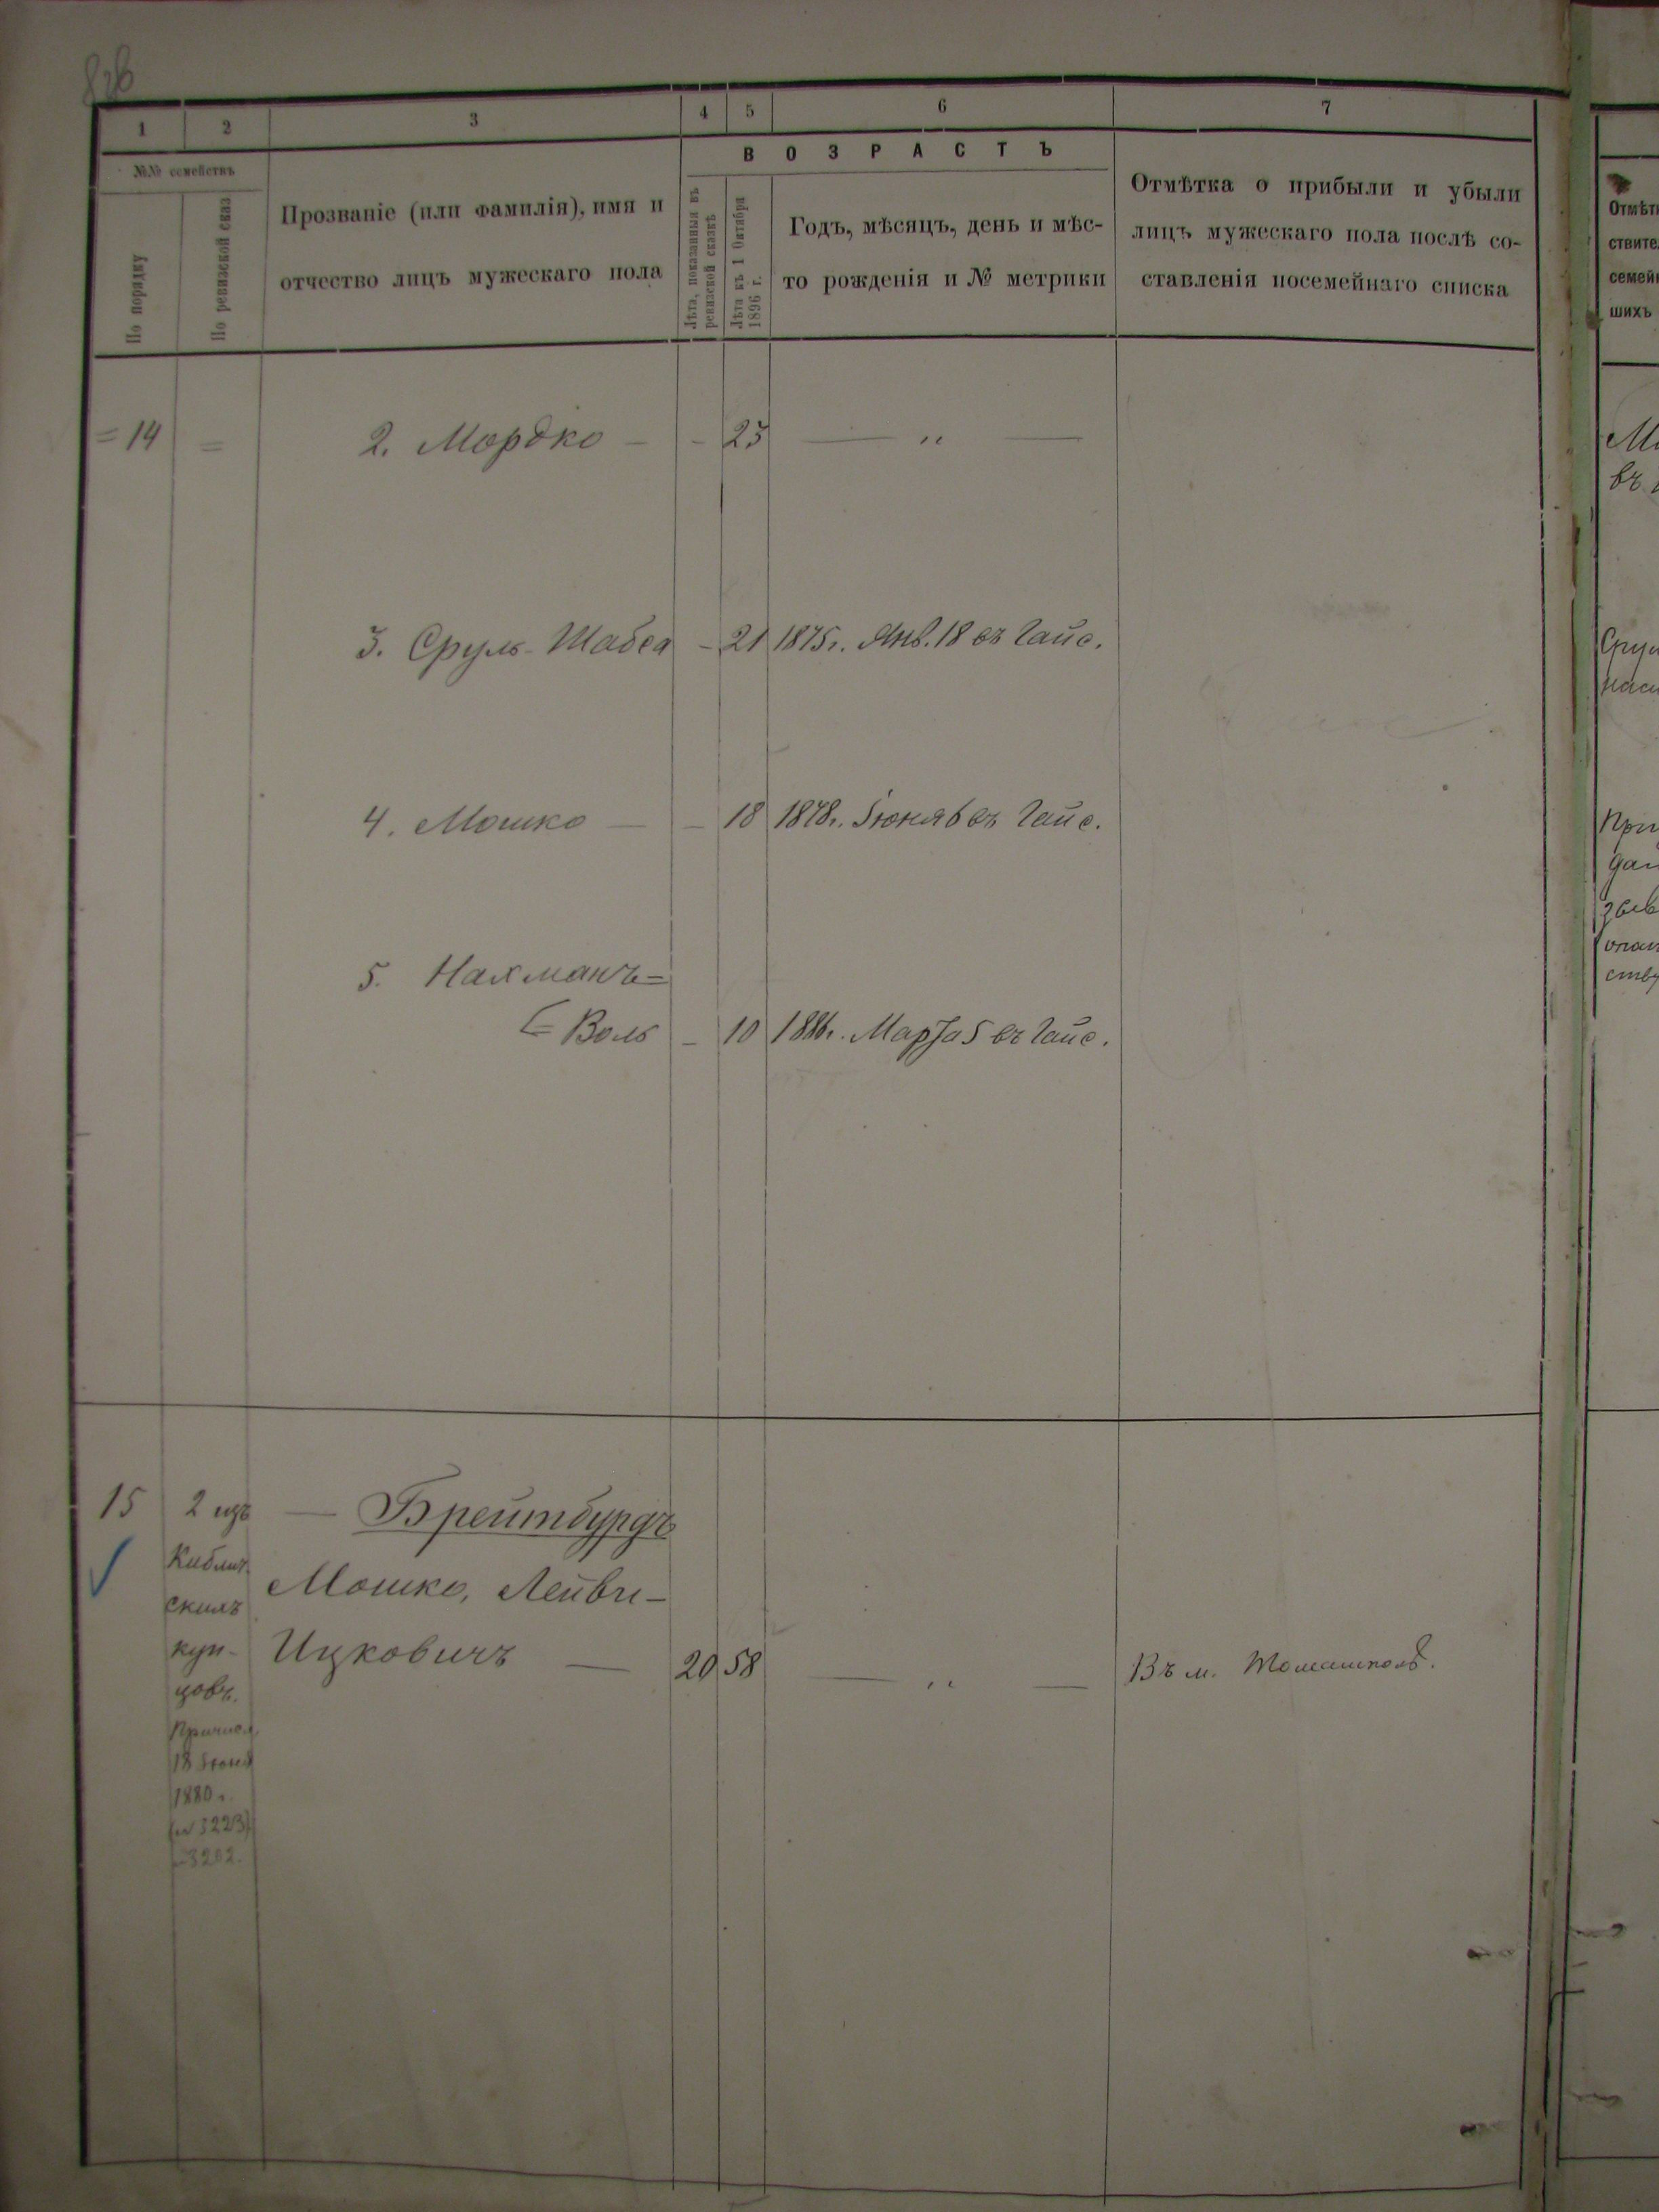 1 2 3 4 5 6 7
№№ семействъ
По порядку
По ревизской сказ
Прозваніе (или фамилія), имя и
отчество лицъ мужескаго пола
ВОЗРАСТЪ
Лѣта, показанныя въ
ревизской сказкѣ
Лѣта къ 1 Октября
1896 г.
Годъ, мѣсяцъ, день и мѣс-
то рожденія и № метрики
Отмѣтка о прибыли и убыли
лицъ мужескаго пола послѣ со-
ставленія посемейнаго списка
=14 = 2. Мордко — - 25 — „ —
3. Сруль-Шабса - 21 1875г. Янв. 18 въ Гайс.
4. Мошко — - 18 1878г. Іюня 6 въ Гайс.
5. Нахманъ=
=Воль - 10 1886г. Марта 5 въ Гайс.
15 2 изъ — Брейтбурдъ
Киблич.
скихъ
куп-
цовъ.
Причисл.
18 Іюня
1880 г.
(№ 3223)
Мошко, Лейви-
Ицковичъ — 20 58 — „ — Въ м. Томашполѣ.
Отмѣт
ствите
семей
шихъ